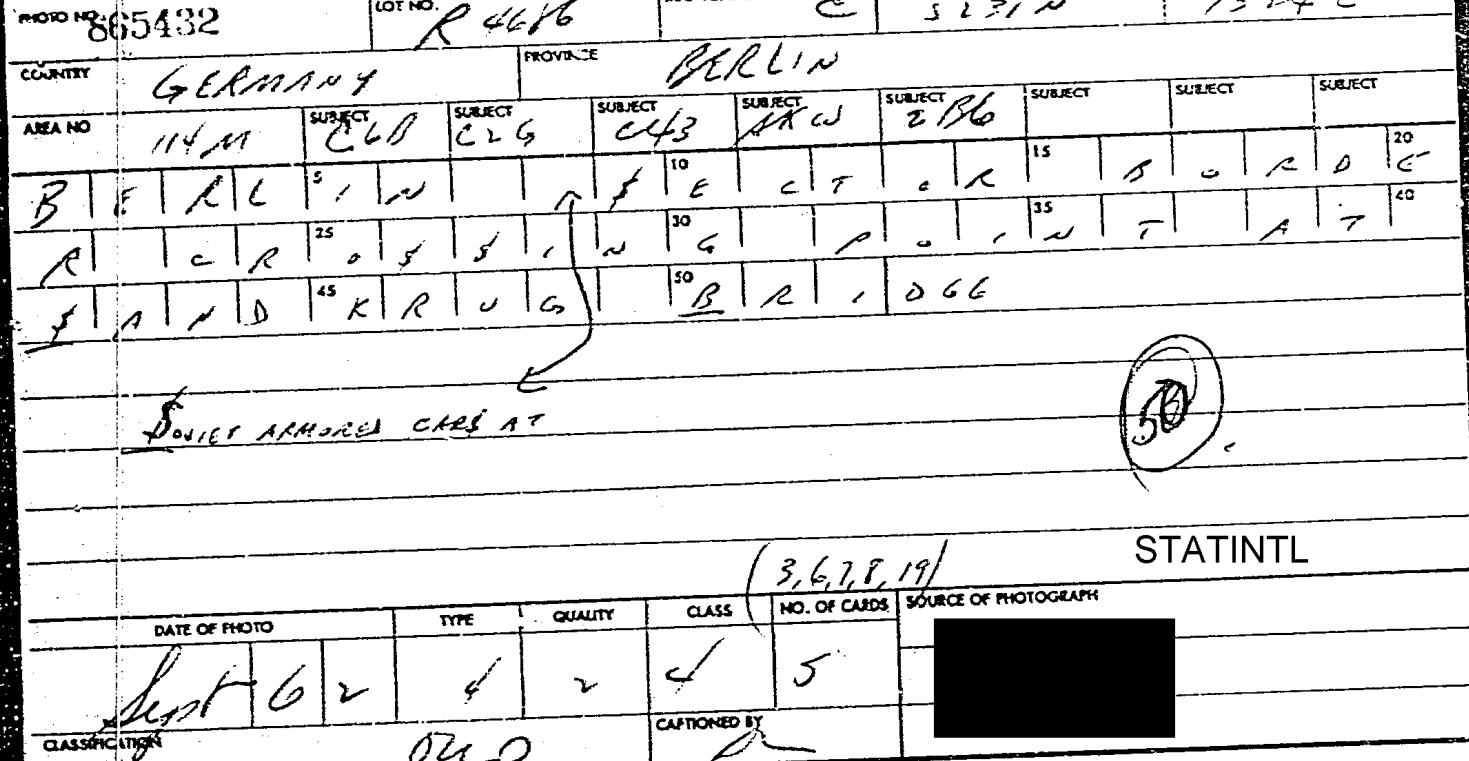 PHOTO NO. 865432 LOT NO. R 4686 C 5231N
COUNTRY GERMANY PROVINCE BERLIN
AREA NO 114M SUBJECT C6B SUBJECT C2G SUBJECT C43 SUBJECT AKW SUBJECT 2B6 SUBJECT SUBJECT SUBJECT
BERL 5 IN $ 10 ECTOR 15 BORD 20 E
R CR 25 O$$IN 30 G POI 35 NT AT 40
$AND 45 KRUG 50 BRIDGE
$OVIET ARMORED CAR$ AT
50
STATINTL
(3,6,7,8,19)
DATE OF PHOTO TYPE QUALITY CLASS NO. OF CARDS SOURCE OF PHOTOGRAPH
Sept 62 4 2 4 5
CLASSIFICATION CAPTIONED BY